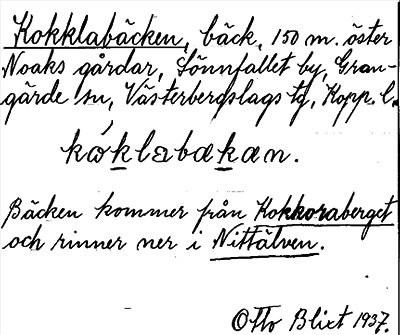 Kokklabäcken, bäck, 150 m. öster
Noaks gårdar, Sönnfallet by, Gran-
gärde sn, Västerbergslags tg, Kopp. l.
kóklabakan.
Bäcken kommer från Kokkoraberget
och rinner ner i Nittälven.
Otto Blixt 1937.